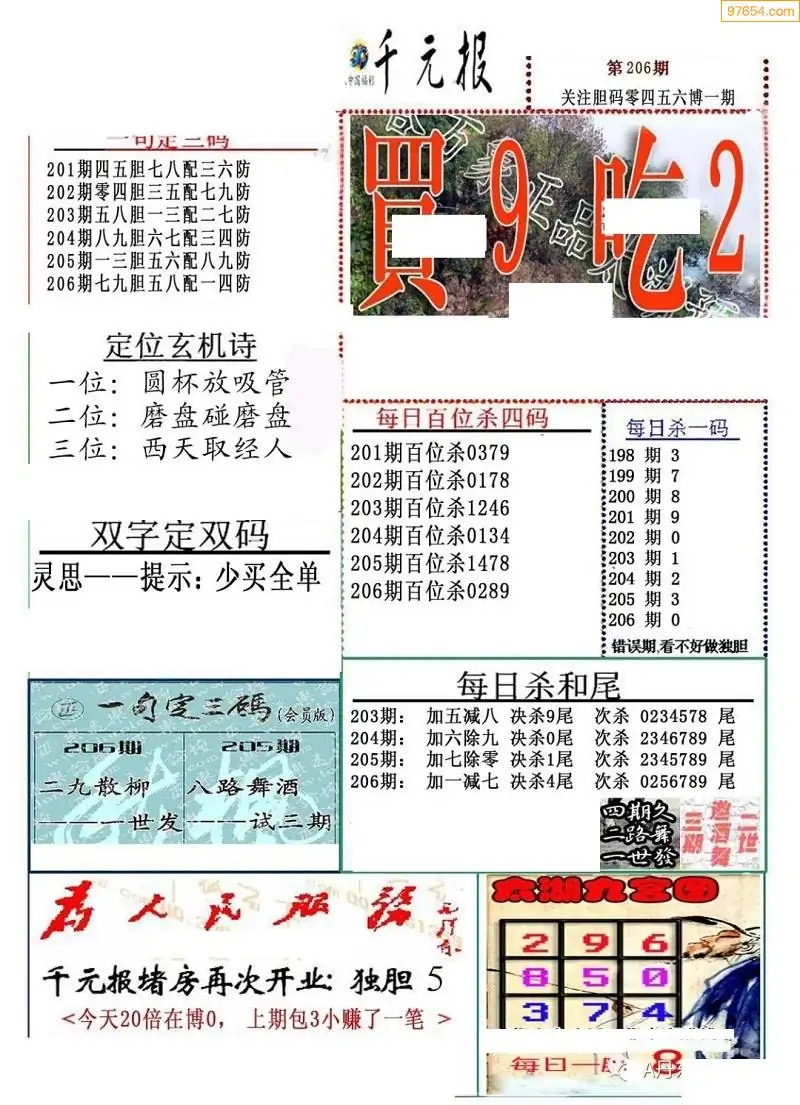 97654.com
千元报
中国福彩
第206期
关注胆码零四五六博一期
買9吃2
一句定三码
201期四五胆七八配三六防
202期零四胆三五配七九防
203期五八胆一三配二七防
204期八九胆六七配三四防
205期一三胆五六配八九防
206期七九胆五八配一四防
定位玄机诗
一位：圆杯放吸管
二位：磨盘碰磨盘
三位：西天取经人
双字定双码
灵思——提示：少买全单
每日百位杀四码
201期百位杀0379
202期百位杀0178
203期百位杀1246
204期百位杀0134
205期百位杀1478
206期百位杀0289
每日杀一码
198 期 3
199 期 7
200 期 8
201 期 9
202 期 0
203 期 1
204 期 2
205 期 3
206 期 0
错误期,看不好做独胆
正 一句定三碼(会员版)
206期 205期
二九散柳 八路舞酒
————世发 ————试三期
每日杀和尾
203期： 加五减八 决杀9尾 次杀 0234578 尾
204期： 加六除九 决杀0尾 次杀 2346789 尾
205期： 加七除零 决杀1尾 次杀 2345789 尾
206期： 加一减七 决杀4尾 次杀 0256789 尾
四期久
二路舞
一世發
三期
邀酒舞
二世
为人民服务
千元报堵房再次开业：独胆 5
<今天20倍在博0， 上期包3小赚了一笔 >
太湖九宫图
2 9 6
8 5 0
3 7 4
每日一胆 8